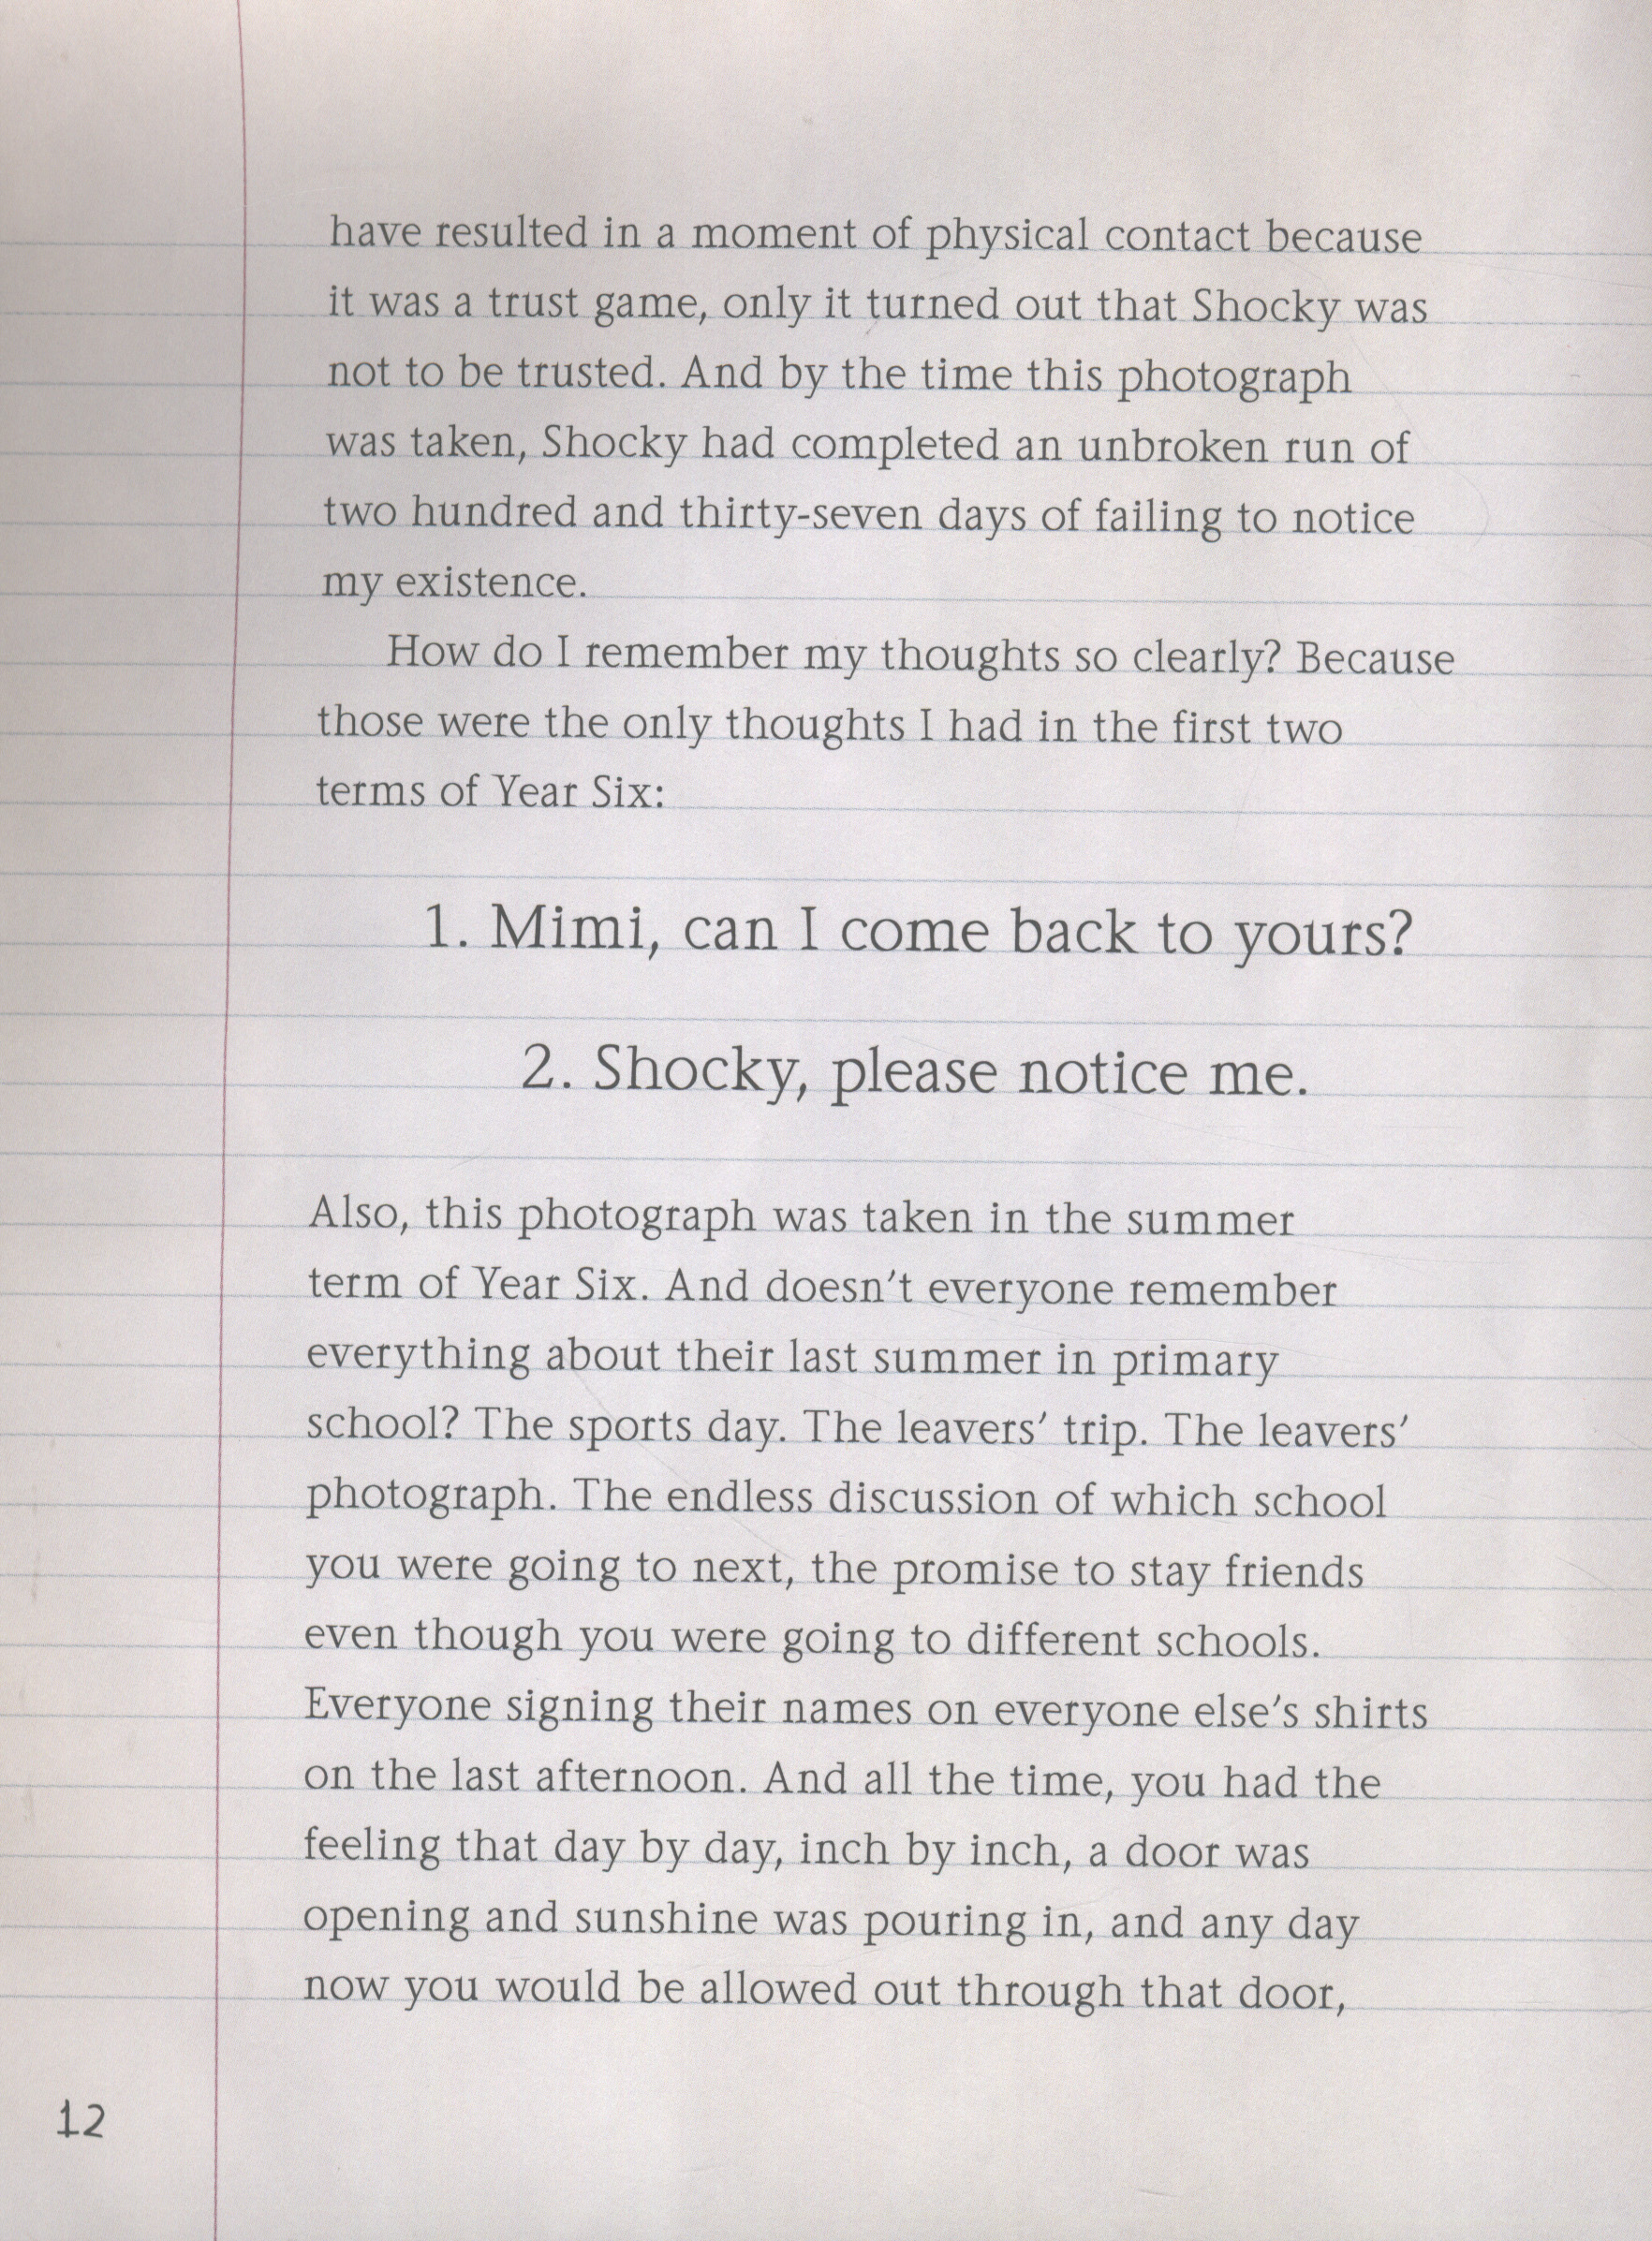 have resulted in a moment of physical contact because
it was a trust game, only it turned out that Shocky was
not to be trusted. And by the time this photograph
was taken, Shocky had completed an unbroken run of
two hundred and thirty-seven days of failing to notice
my existence.
How do I remember my thoughts so clearly? Because
those were the only thoughts I had in the first two
terms of Year Six:
1. Mimi, can I come back to yours?
2. Shocky, please notice me.
Also, this photograph was taken in the summer
term of Year Six. And doesn’t everyone remember
everything about their last summer in primary
school? The sports day. The leavers’ trip. The leavers’
photograph. The endless discussion of which school
you were going to next, the promise to stay friends
even though you were going to different schools.
Everyone signing their names on everyone else’s shirts
on the last afternoon. And all the time, you had the
feeling that day by day, inch by inch, a door was
opening and sunshine was pouring in, and any day
now you would be allowed out through that door,
12